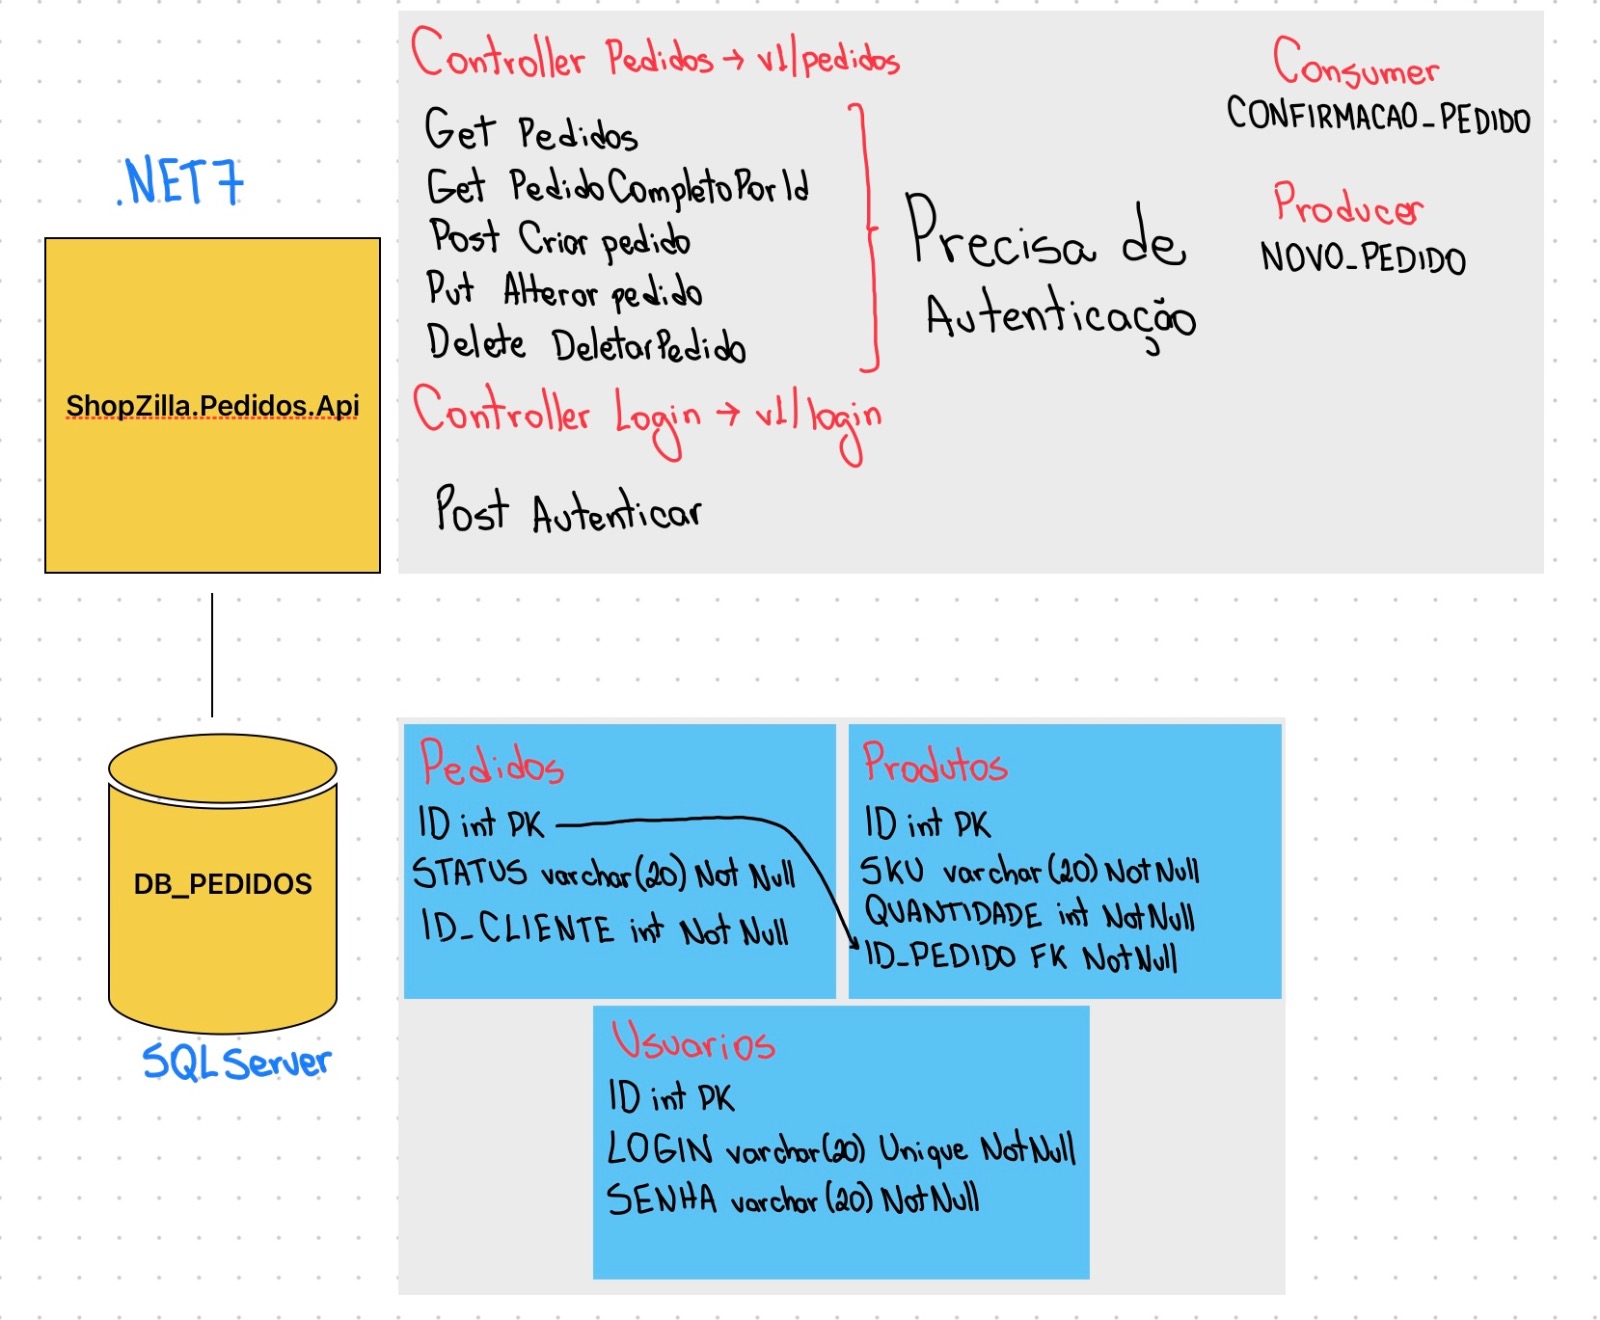 .NET7
ShopZilla.Pedidos.Api
Controller Pedidos → v1/pedidos
Get Pedidos
Get PedidoCompletoPorId
Post Criar pedido
Put Alterar pedido
Delete DeletarPedido
Precisa de
Autenticação
Controller Login → v1/login
Post Autenticar
Consumer
CONFIRMACAO_PEDIDO
Producer
NOVO_PEDIDO
DB_PEDIDOS
SQLServer
Pedidos
ID int PK
STATUS varchar(20) Not Null
ID_CLIENTE int Not Null
Produtos
ID int PK
SKU varchar(20) Not Null
QUANTIDADE int Not Null
ID_PEDIDO FK Not Null
Usuarios
ID int PK
LOGIN varchar(20) Unique Not Null
SENHA varchar(20) Not Null